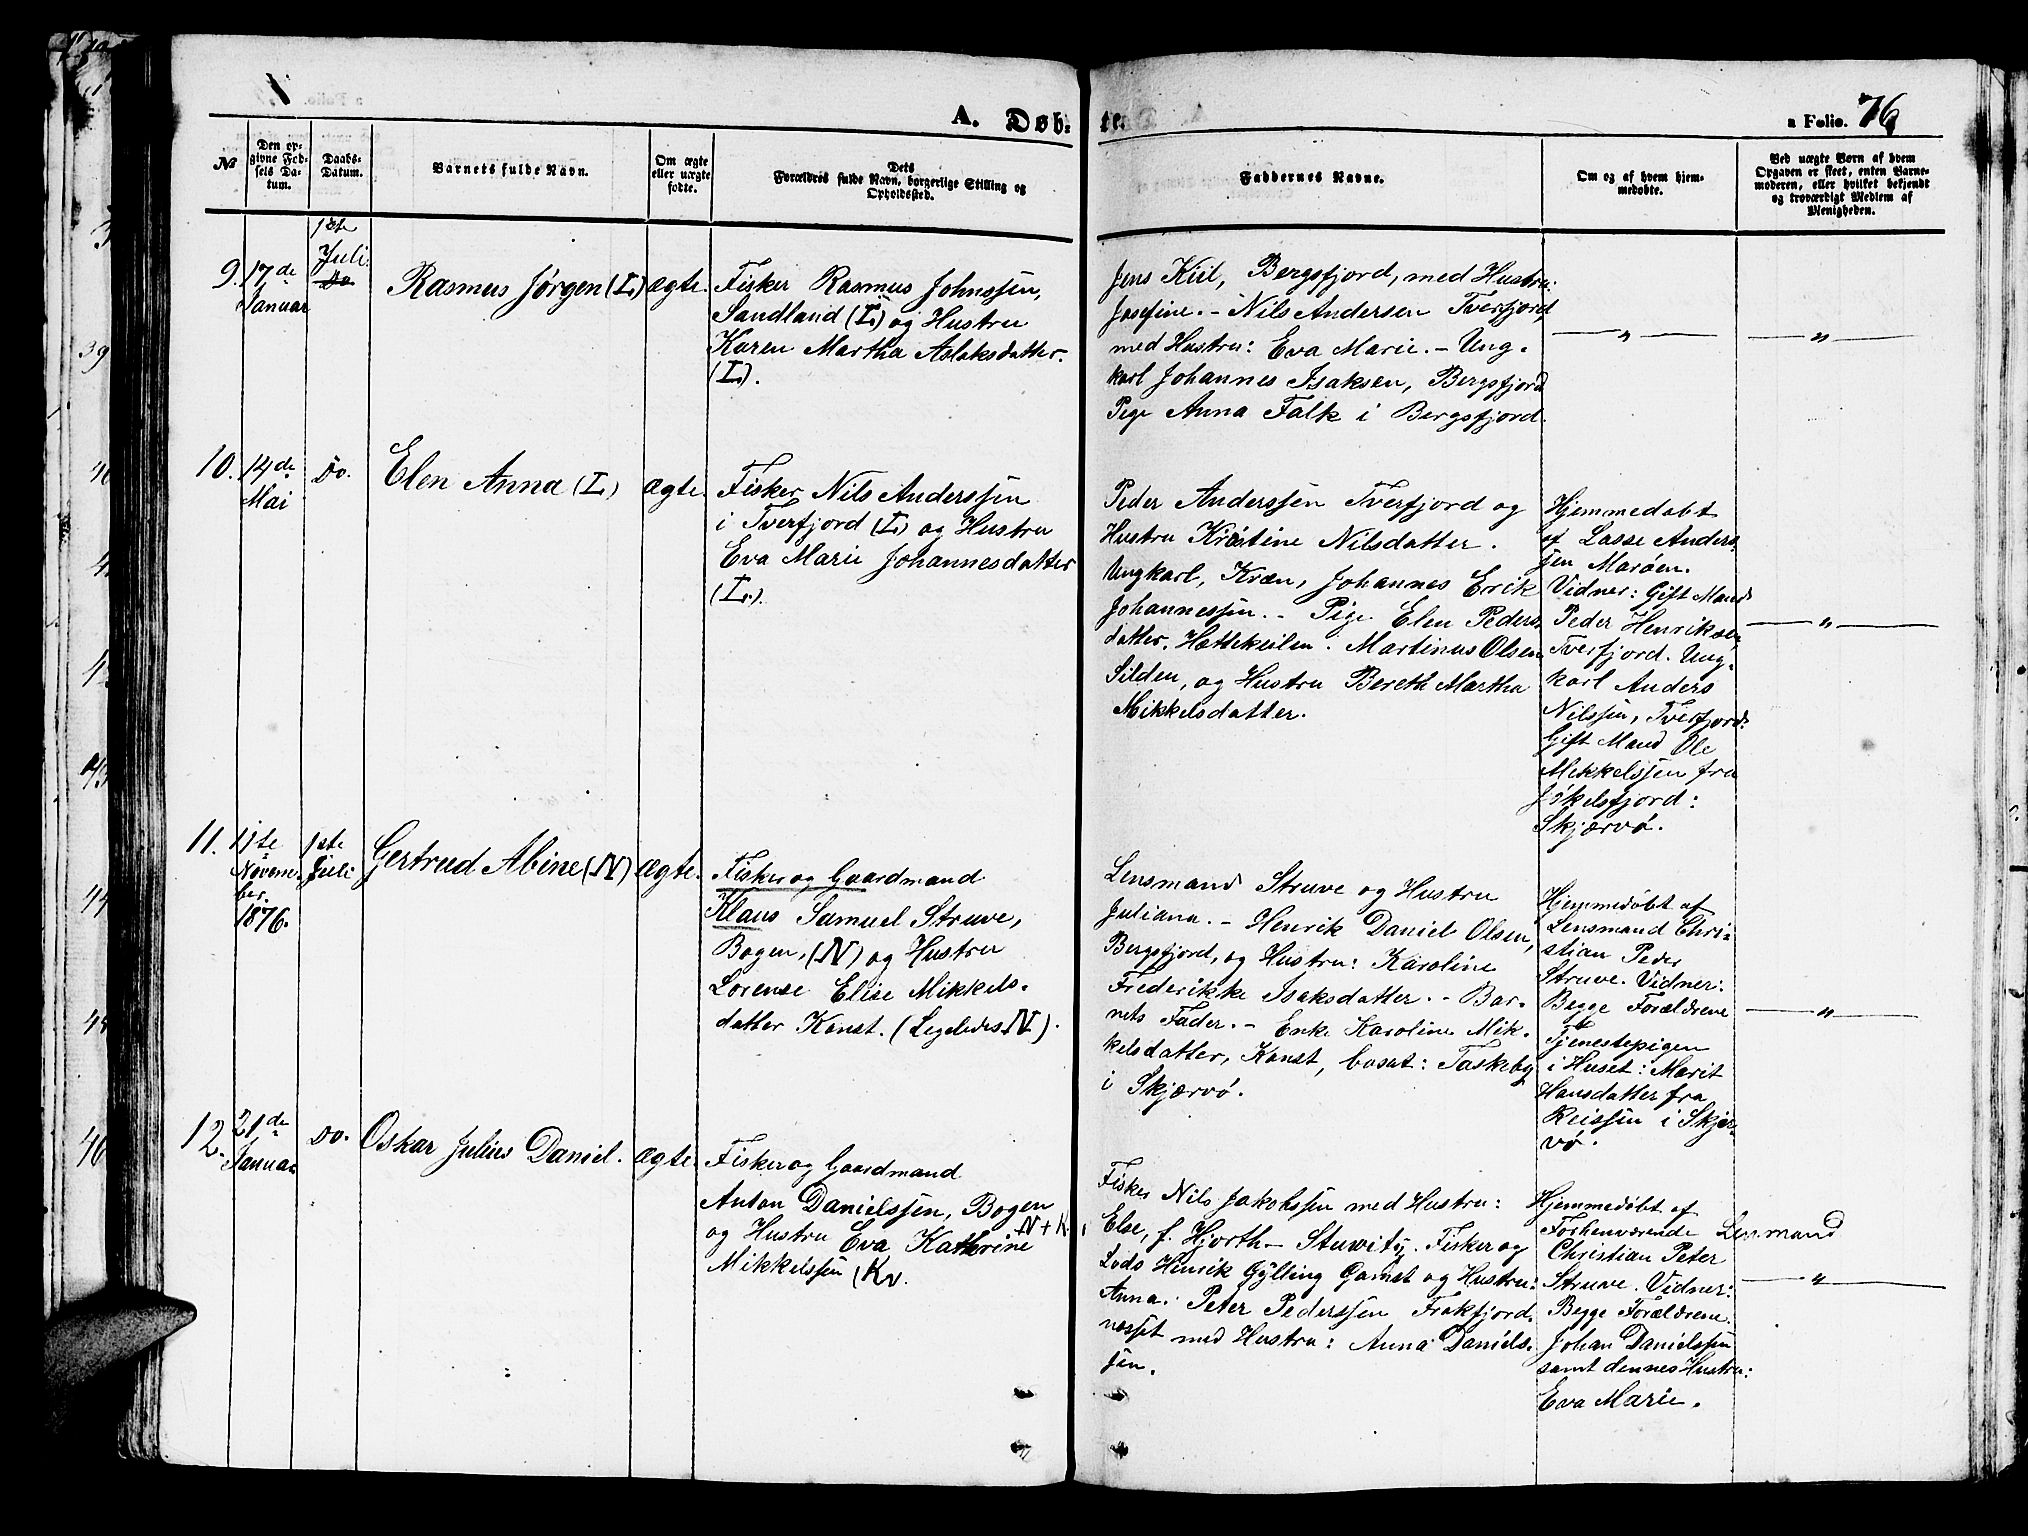 A. Døb-
te.
a Folio. 76
№
Den op-
givne Fød-
sels Da-
tum.
Daabs-
Datum.
Barnets fulde Navn.
Om ægte
eller uægte
fødte.
Dets
Forældres fulde Navn, borgerlige Stilling og
Opholdssted.
Faddernes Navne.
Om og af hvem hjem-
medøbte.
Ved uægte Børn af hvem
Opgaven er skeet, enten Barne-
moderen, eller hvilket bekjendt
og troværdigt Medlem af
Menigheden.
9.
17de
Januar
1ste
Juli
Do.
Rasmus Jørgen (L)
ægte.
Fisker Rasmus Johnssen,
Sandland (L) og Hustru
Karen Martha Aslaksdatter.
(L).
Jens Kiil, Bergsfjord, med Hustru:
Josefine. - Nils Andersen Tverfjord,
med Hustru: Eva Marie. - Ung-
karl Johannes Isaksen, Bergsfjord
Pige Anna Falk i Bergsfjord.
— " —
— " —
10.
14de
Mai
Do.
Elen Anna (L)
ægte.
Fisker Nils Anderssen
i Tverfjord (L) og Hustru
Eva Marie Johannesdatter
(L.).
Peder Anderssen Tverfjord og
Hustru Kristine Nilsdatter.
Ungkarl, Kræn, Johannes Erik
Johannessen. - Pige Elen Peders
datter, Hættekeilen. Martinus Olsen
Silden, og Hustru Bereth Martha
Mikkelsdatter.
Hjemmedøbt
af Lasse Anders-
sen Marøen.
Vidner: Gift Mand
Peder Henriksen,
Tverfjord. Ung-
karl Anders
Nilssen, Tverfjord:
Gift Mand Ole
Mikkelssen fra
Jøkelsfjord:
Skjærvø.
— " —
11.
11te
Novem-
ber.
1876.
1ste
Juli
Gertrud Abine (N)
ægte.
Fisker og Gaardmand
Klaus Samuel Struve,
Bogen, (N) og Hustru
Lorense Elise Mikkels-
datter Kanst. (Ligeledes N).
Lensmand Struve og Hustru
Juliana. - Henrik Daniel Olsen,
Bergsfjord, og Hustru: Karoline
Frederikke Isaksdatter. - Bar-
nets Fader. - Enke Karoline Mik-
kelsdatter, Kanst, bosat: Taskeby
i Skjærvø.
Hjemmedøbt af
Lensmand Chri-
stian Peder
Struve. Vidner:
Begge Forældrene
Tjenestepigen
i Huset: Marit
Hansdatter fra
Reissen i Skjær-
vø.
— " —
12.
21de
Januar
Do.
Oskar Julius Daniel.
ægte.
Fisker og Gaardmand
Anton Danielssen, Bogen
N + K.
og Hustru Eva Kathrine
Mikkelssen (Kv.
Fisker Nils Jakobssen med Hustru:
Else, f. Hjorth - Stuwitz. Fisker og
Lods Henrik Gylling Qanst og Hustru:
Anna. Peter Pederssen Frakfjord.
nesset med Hustru: Anna Daniels-
sen.
Hjemmedøbt af
Forhenværende Lensmand
Christian Peter
Struve. Vidner:
Begge Forældrene.
Johan Danielssen
samt dennes Hustru:
Eva Marie.
— " —